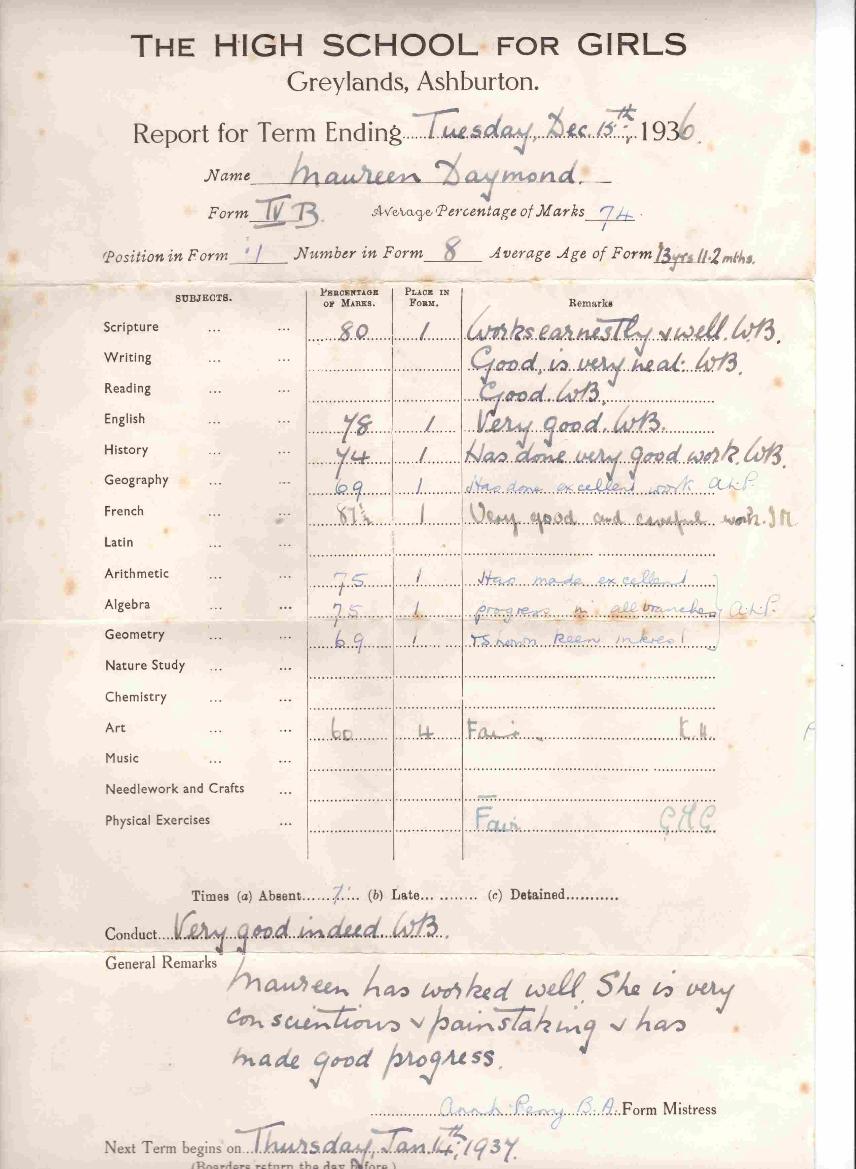 THE HIGH SCHOOL FOR GIRLS
Greylands, Ashburton.
Report for Term Ending Tuesday, Dec. 15th, 1936.
Name Maureen Daymond.
Form IV B. Average Percentage of Marks 74.
Position in Form 1 Number in Form 8 Average Age of Form 13 yrs 11.2 mths.
SUBJECTS. PERCENTAGE OF MARKS. PLACE IN FORM. Remarks
Scripture ... ... 80 1 Works earnestly & well. WB.
Writing ... ... Good, is very neat. WB.
Reading ... ... Good. WB.
English ... ... 78 1 Very good. WB.
History ... ... 74 1 Has done very good work. WB.
Geography ... ... 69 1 Has done excellent work A.L.P.
French ... ... 87½ 1 Very good and careful work. J.M.
Latin ... ...
Arithmetic ... ... 75 1 Has made excellent
Algebra ... ... 75 1 progress in all branches A.L.P.
Geometry ... ... 69 1 & shown keen interest
Nature Study ... ...
Chemistry ... ...
Art ... ... 60 4 Fair. K.H.
Music ... ...
Needlework and Crafts ...
Physical Exercises ... Fair GMG
Times (a) Absent...... (b) Late... ........ (c) Detained...........
Conduct Very good indeed. WB.
General Remarks Maureen has worked well. She is very
conscientious & painstaking & has
made good progress.
Perry B.A. Form Mistress
Next Term begins on Thursday, Jan. 14th, 1937.
(Boarders return the day before.)